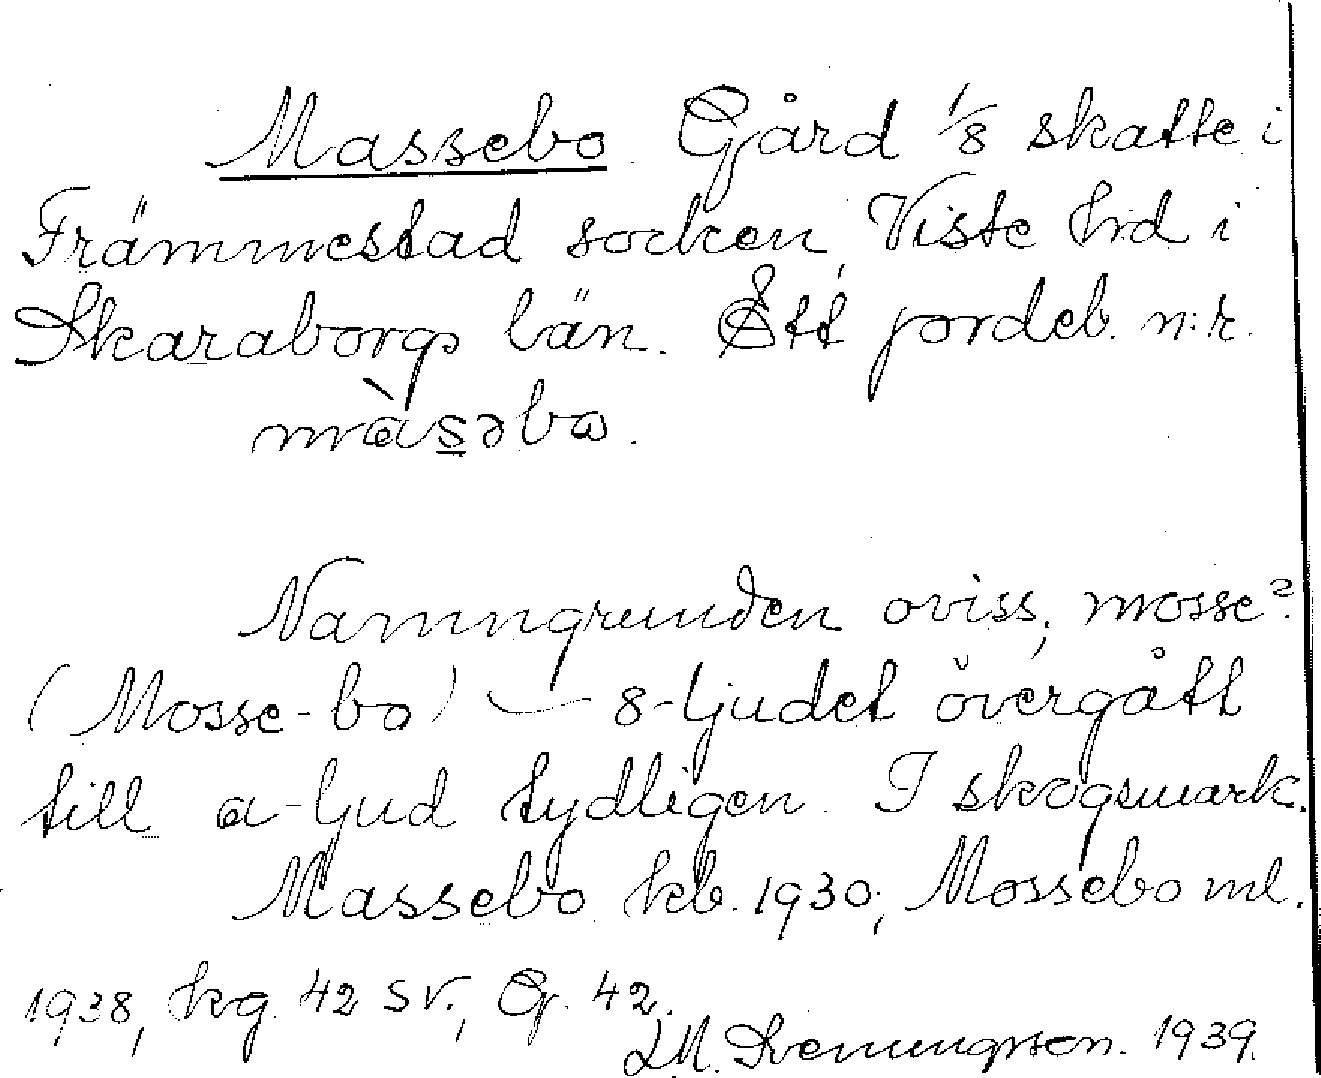 Massebo. Gård 1/8 skatte i
Främmestad socken, Viste hd i
Skaraborgs län. Ett jordeb. n:r.
màsəbω.
Namngrunden oviss, mosse?
(Mosse-bo) — 8-ljudet övergått
till a-ljud tydligen. I skogsmark.
Massebo kb. 1930; Mossebo ml.
1938, kg. 42 SV., G. 42.
1939.